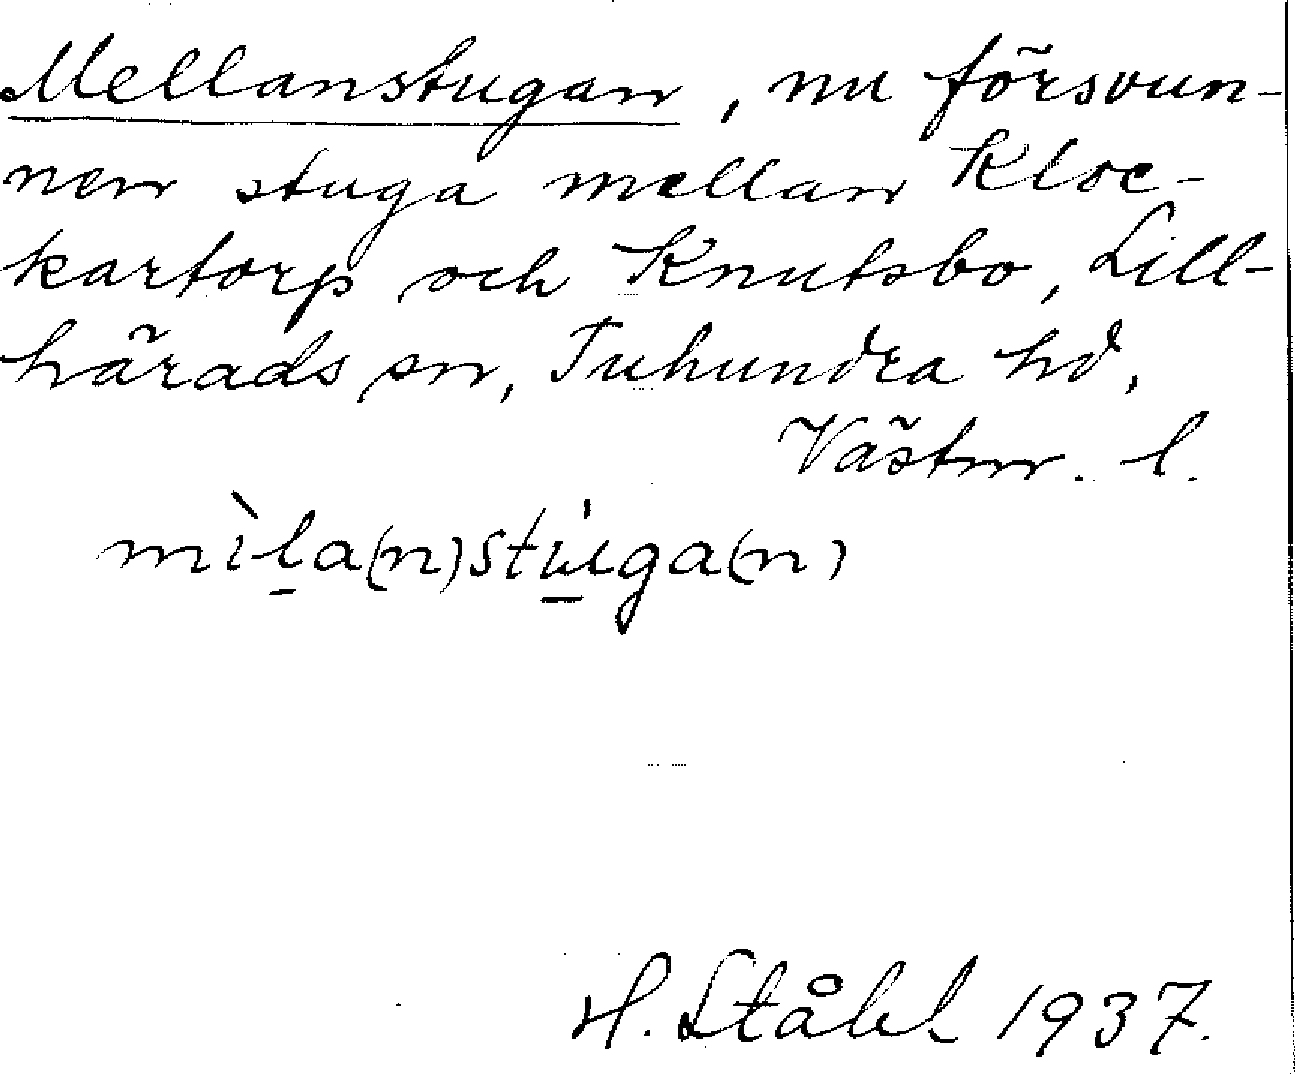 Mellanstugan, nu försvun-
nen stuga mellan Kloc-
kartorp och Knutsbo, Lill-
härads sn, Tuhundra hd,
Västm. l.
mìla(n)stúga(n)
H. Ståhl 1937.